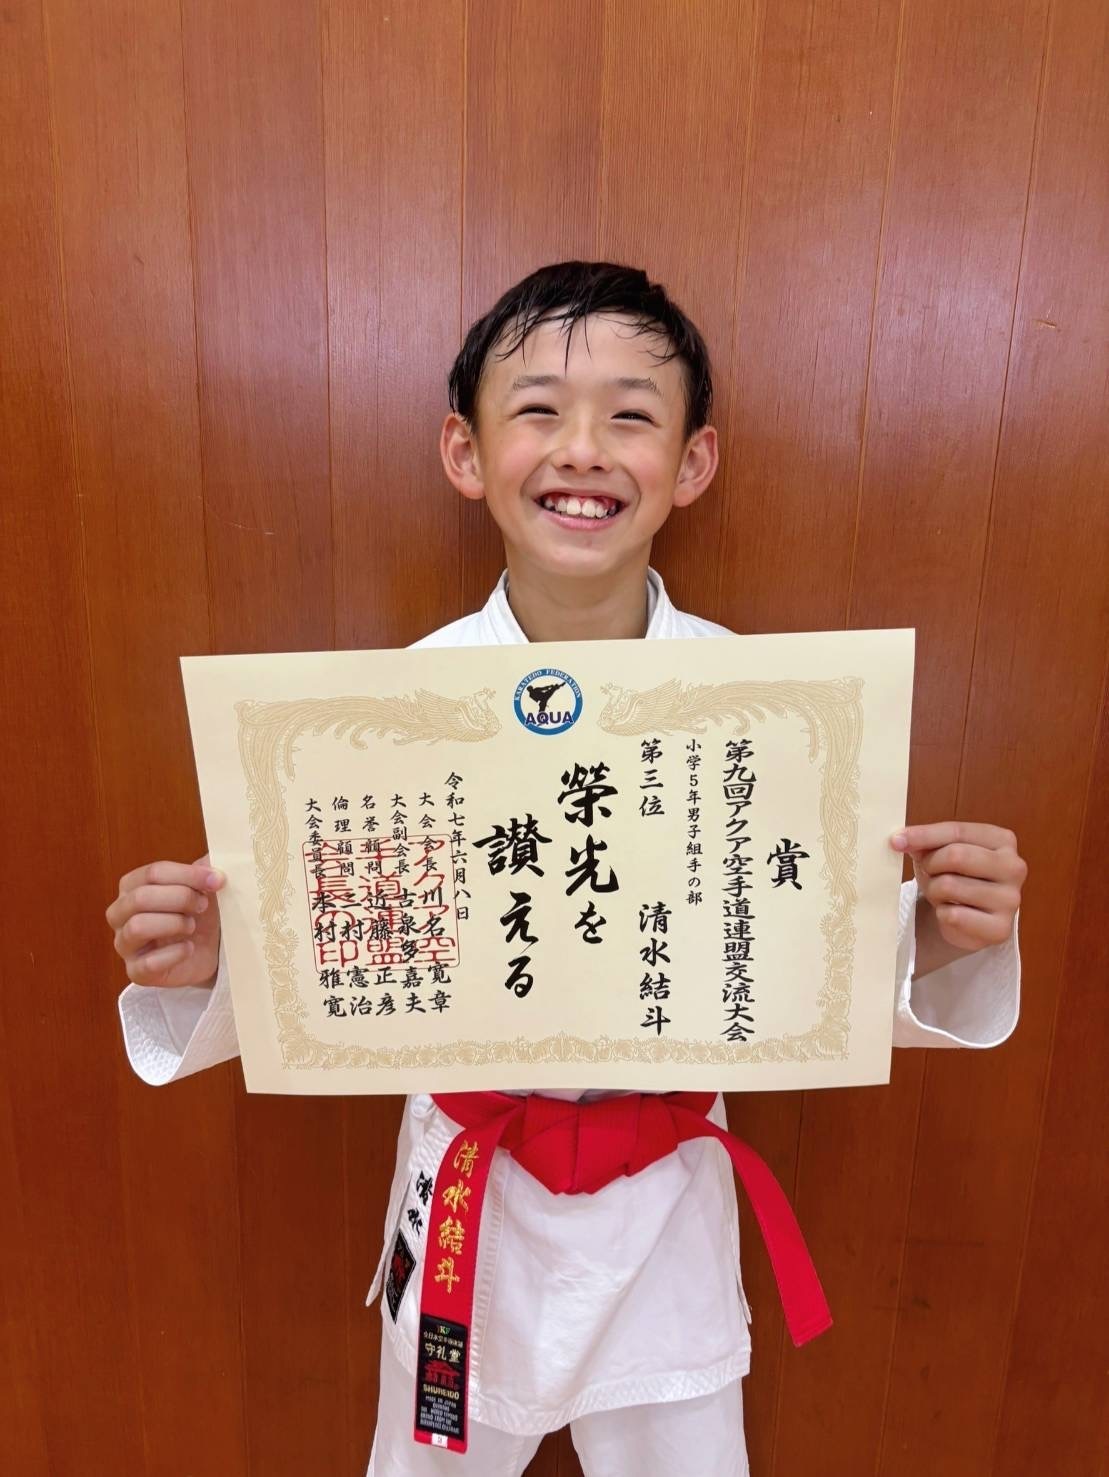 KARATEDO FEDERATION
AQUA
賞
第九回アクア空手道連盟交流大会
小学5年男子組手の部
第三位 清水結斗
榮光を
讃える
令和七年六月八日
大会会長 川名 寛章
大会副会長 古泉多嘉夫
名誉顧問 近藤 正彦
倫理顧問 二村 憲治
大会委員長 本村 雅寛
アクア空
手道連盟
会長の印
清水結斗
清水
守礼堂
SHUREIDO
MADE IN JAPAN